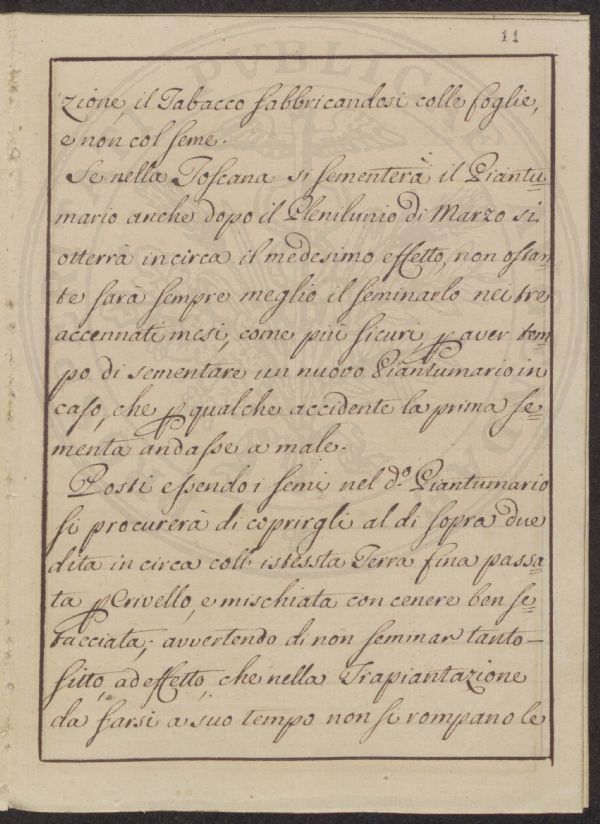 11
zione, il Tabacco fabbricandosi colle foglie,
e non col seme.
Se nella Toscana si sementerà il Piantu=
mario anche dopo il Plenilunio di Marzo si
otterrà incirca il medesimo effetto, non ostan=
te sarà sempre meglio il seminarlo nei tre
accennati mesi, come più sicuri p aver tem=
po di sementare un nuovo Piantumario in
caso, che p qualche accidente la prima se=
menta andasse a male.
Posti essendo i semi nel d.º Piantumario
si procurerà di coprirgli al di sopra due
dita in circa coll' istessta Terra fina passa=
ta p Crivello, e mischiata con cenere ben se=
tacciata; avvertendo di non seminar tanto—
fitto, ad effetto, che nella Trapiantazione
da farsi a suo tempo non si rompano le